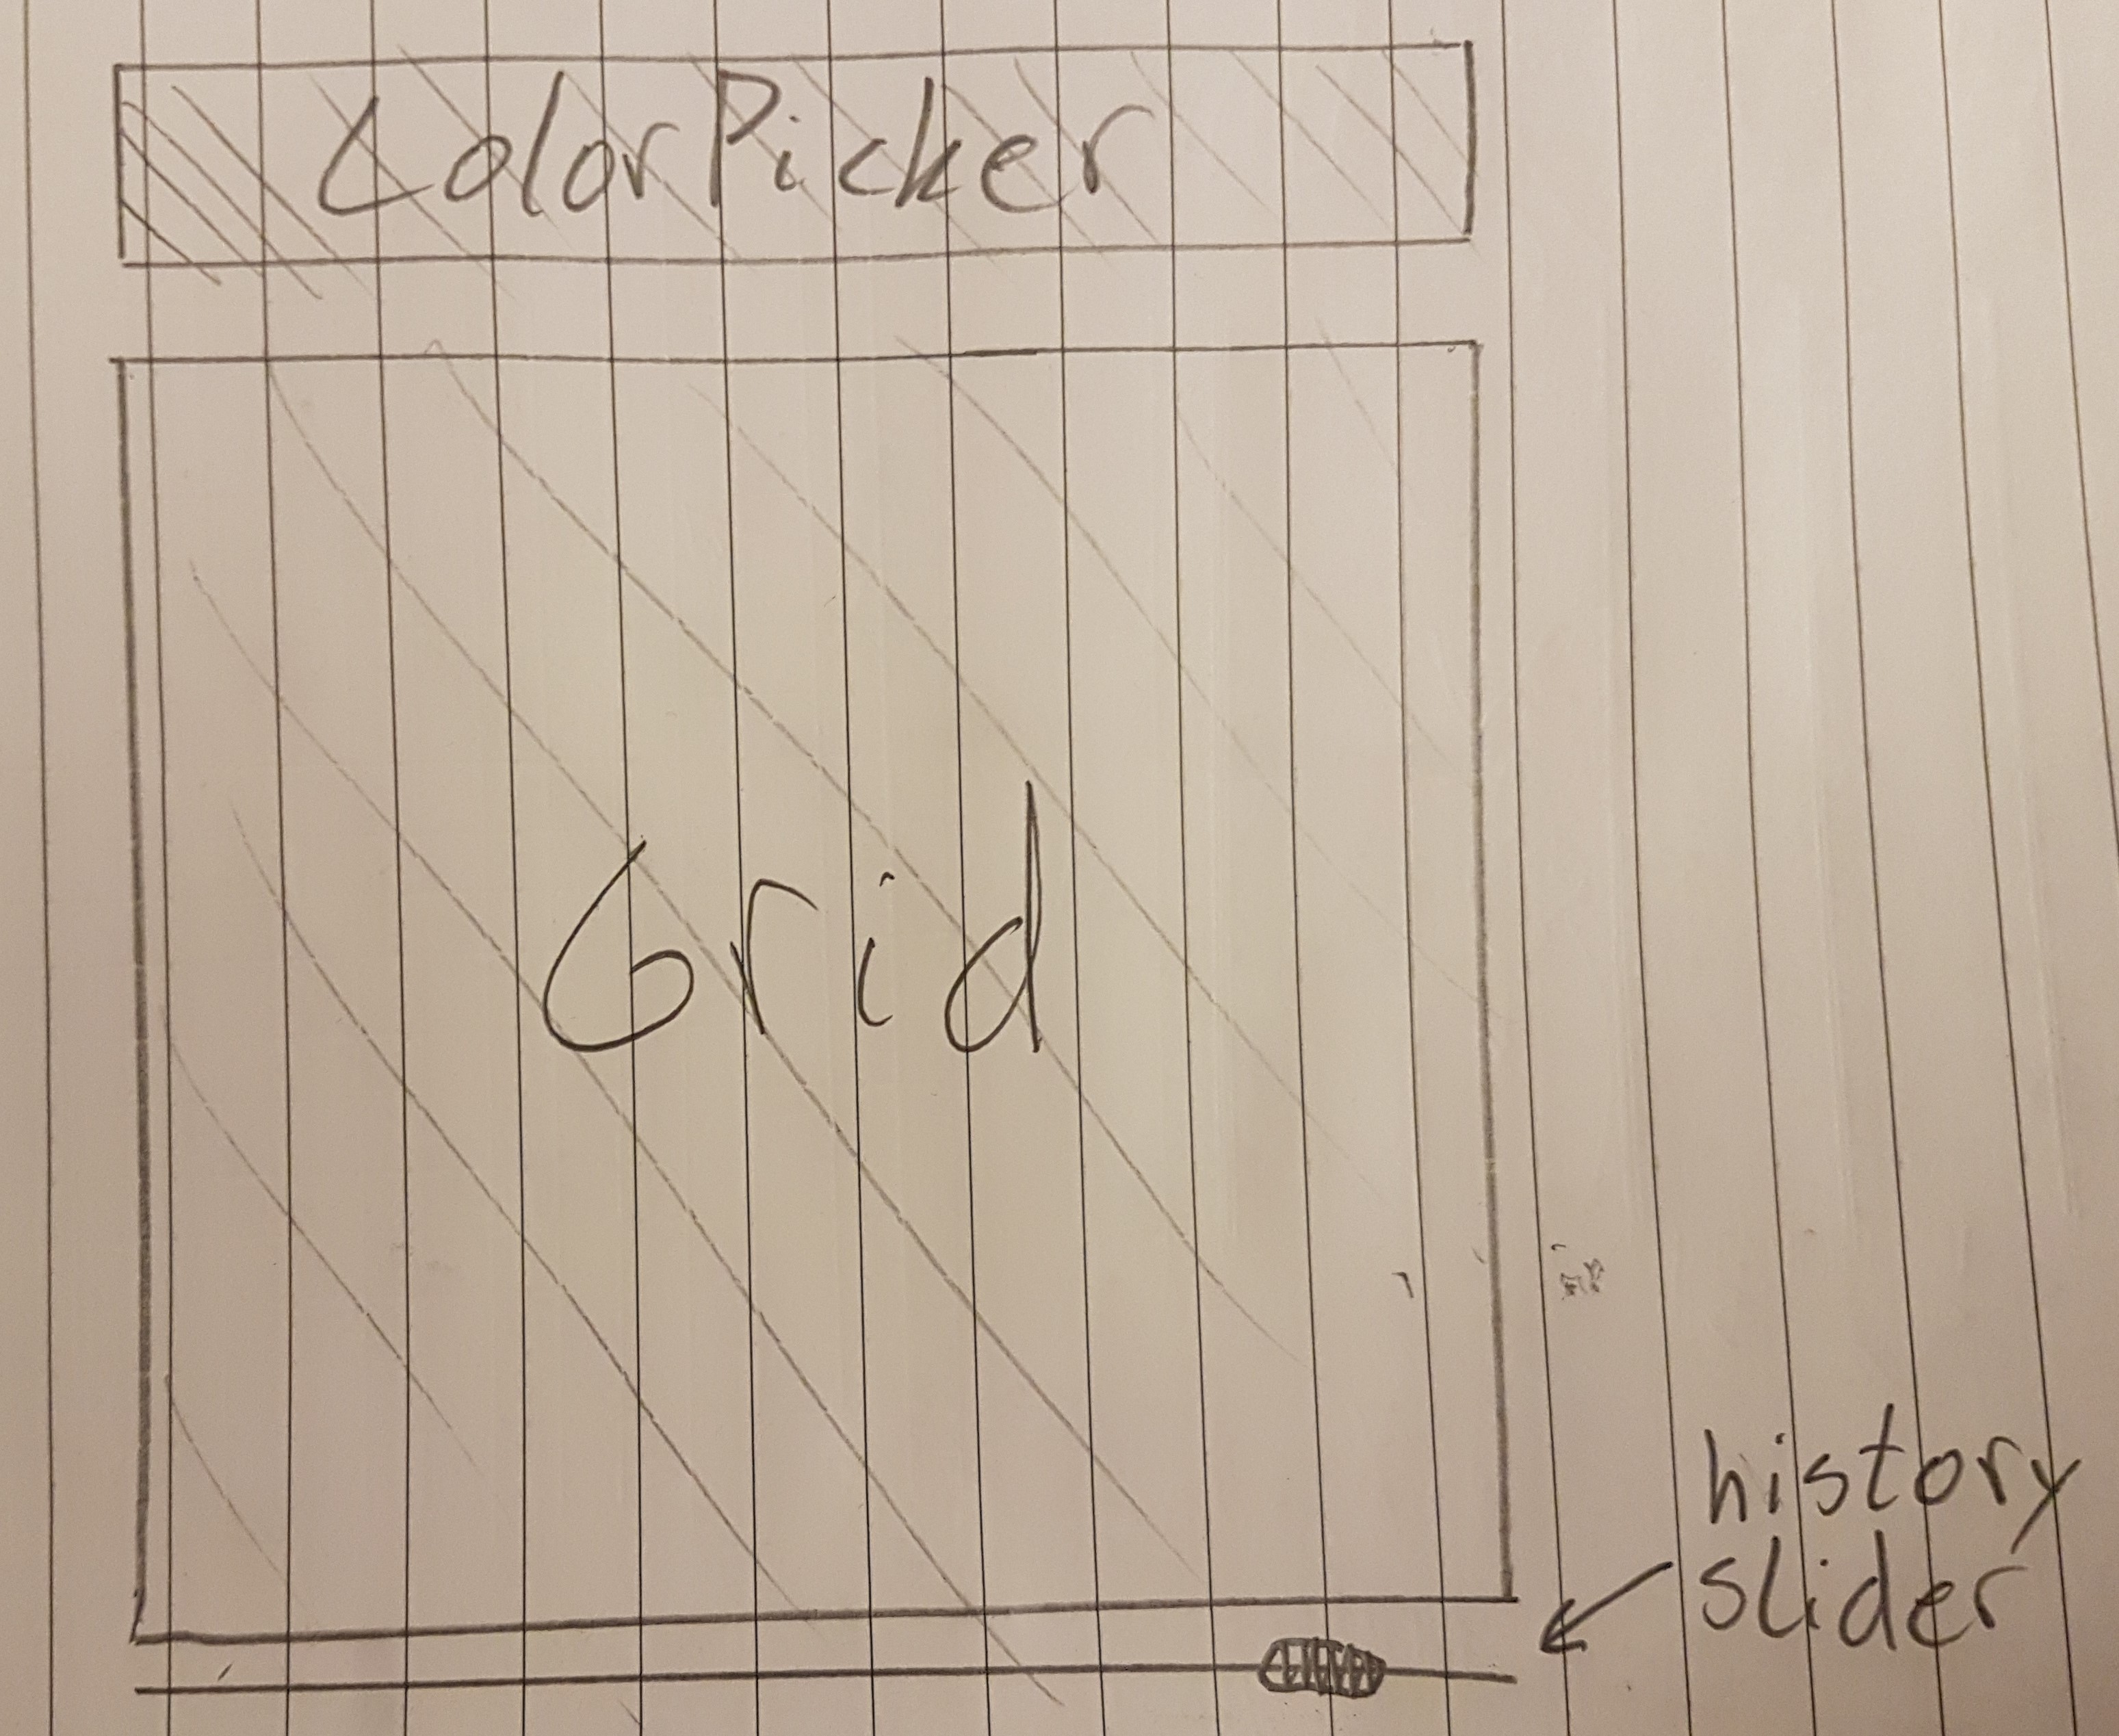 ColorPicker
Grid
history
slider